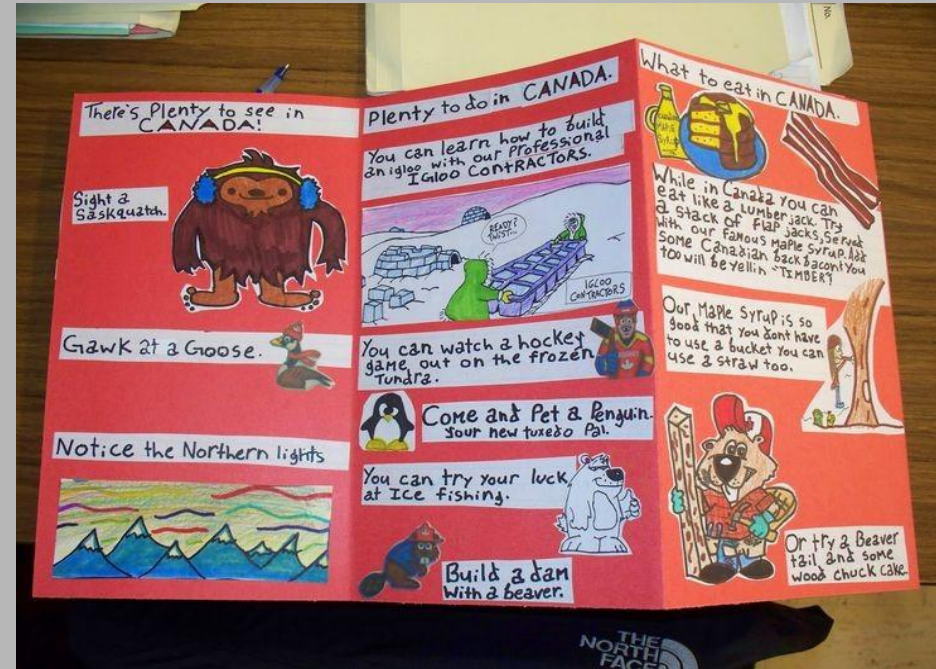 There's Plenty to see in
CANADA!
Sight a
Saskquatch.
Gawk at a Goose.
Notice the Northern lights
Plenty to do in CANADA.
You can learn how to build
an igloo with our Professional
IGloo CONtRACTORS.
READY?
TWIST...
IGLOO
CONTRACTORS
You can watch a hockey
game out on the frozen
Tundra.
Come and Pet a Penguin.
Your new tuxedo Pal.
You can try your luck
at Ice fishing.
Build a dam
with a beaver.
What to eat in CANADA.
MAPLE
SYRUP
While in Canada you can
eat like a Lumber jack. Try
a stack of flap jacks, Served
with our famous maple Syrup. Add
some Canadian back bacon & You
too will be yellin "TIMBER"!
Our Maple Syrup is so
good that you dont have
to use a bucket you can
use a straw too.
Or try a Beaver
tail, and some
wood chuck cake.
No.
THE
NORTH
FACE